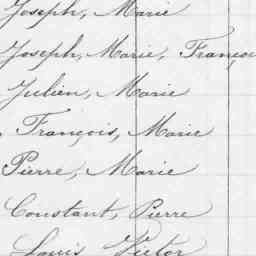 Joseph, Marie
Joseph, Marie, Françoi
Julien, Marie
François, Marie
Pierre, Marie
Constant, Pierre
Louis Victor